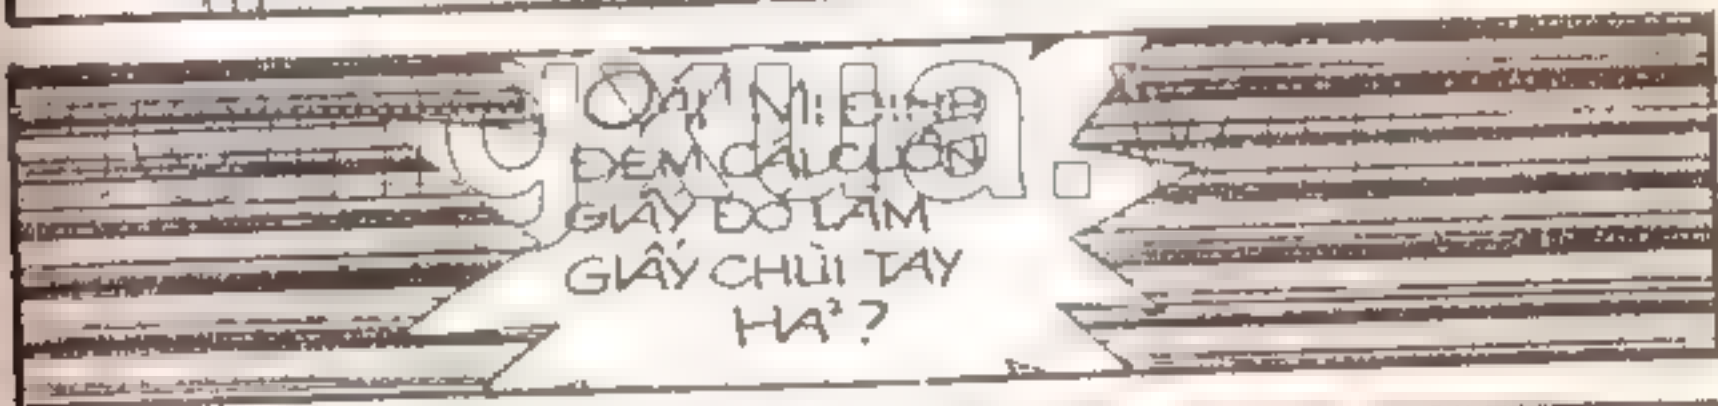 MI ĐỊNH
ĐEM CÁI CUỘN
GIẤY ĐÓ LÀM
GIẤY CHÙI TAY
HẢ?